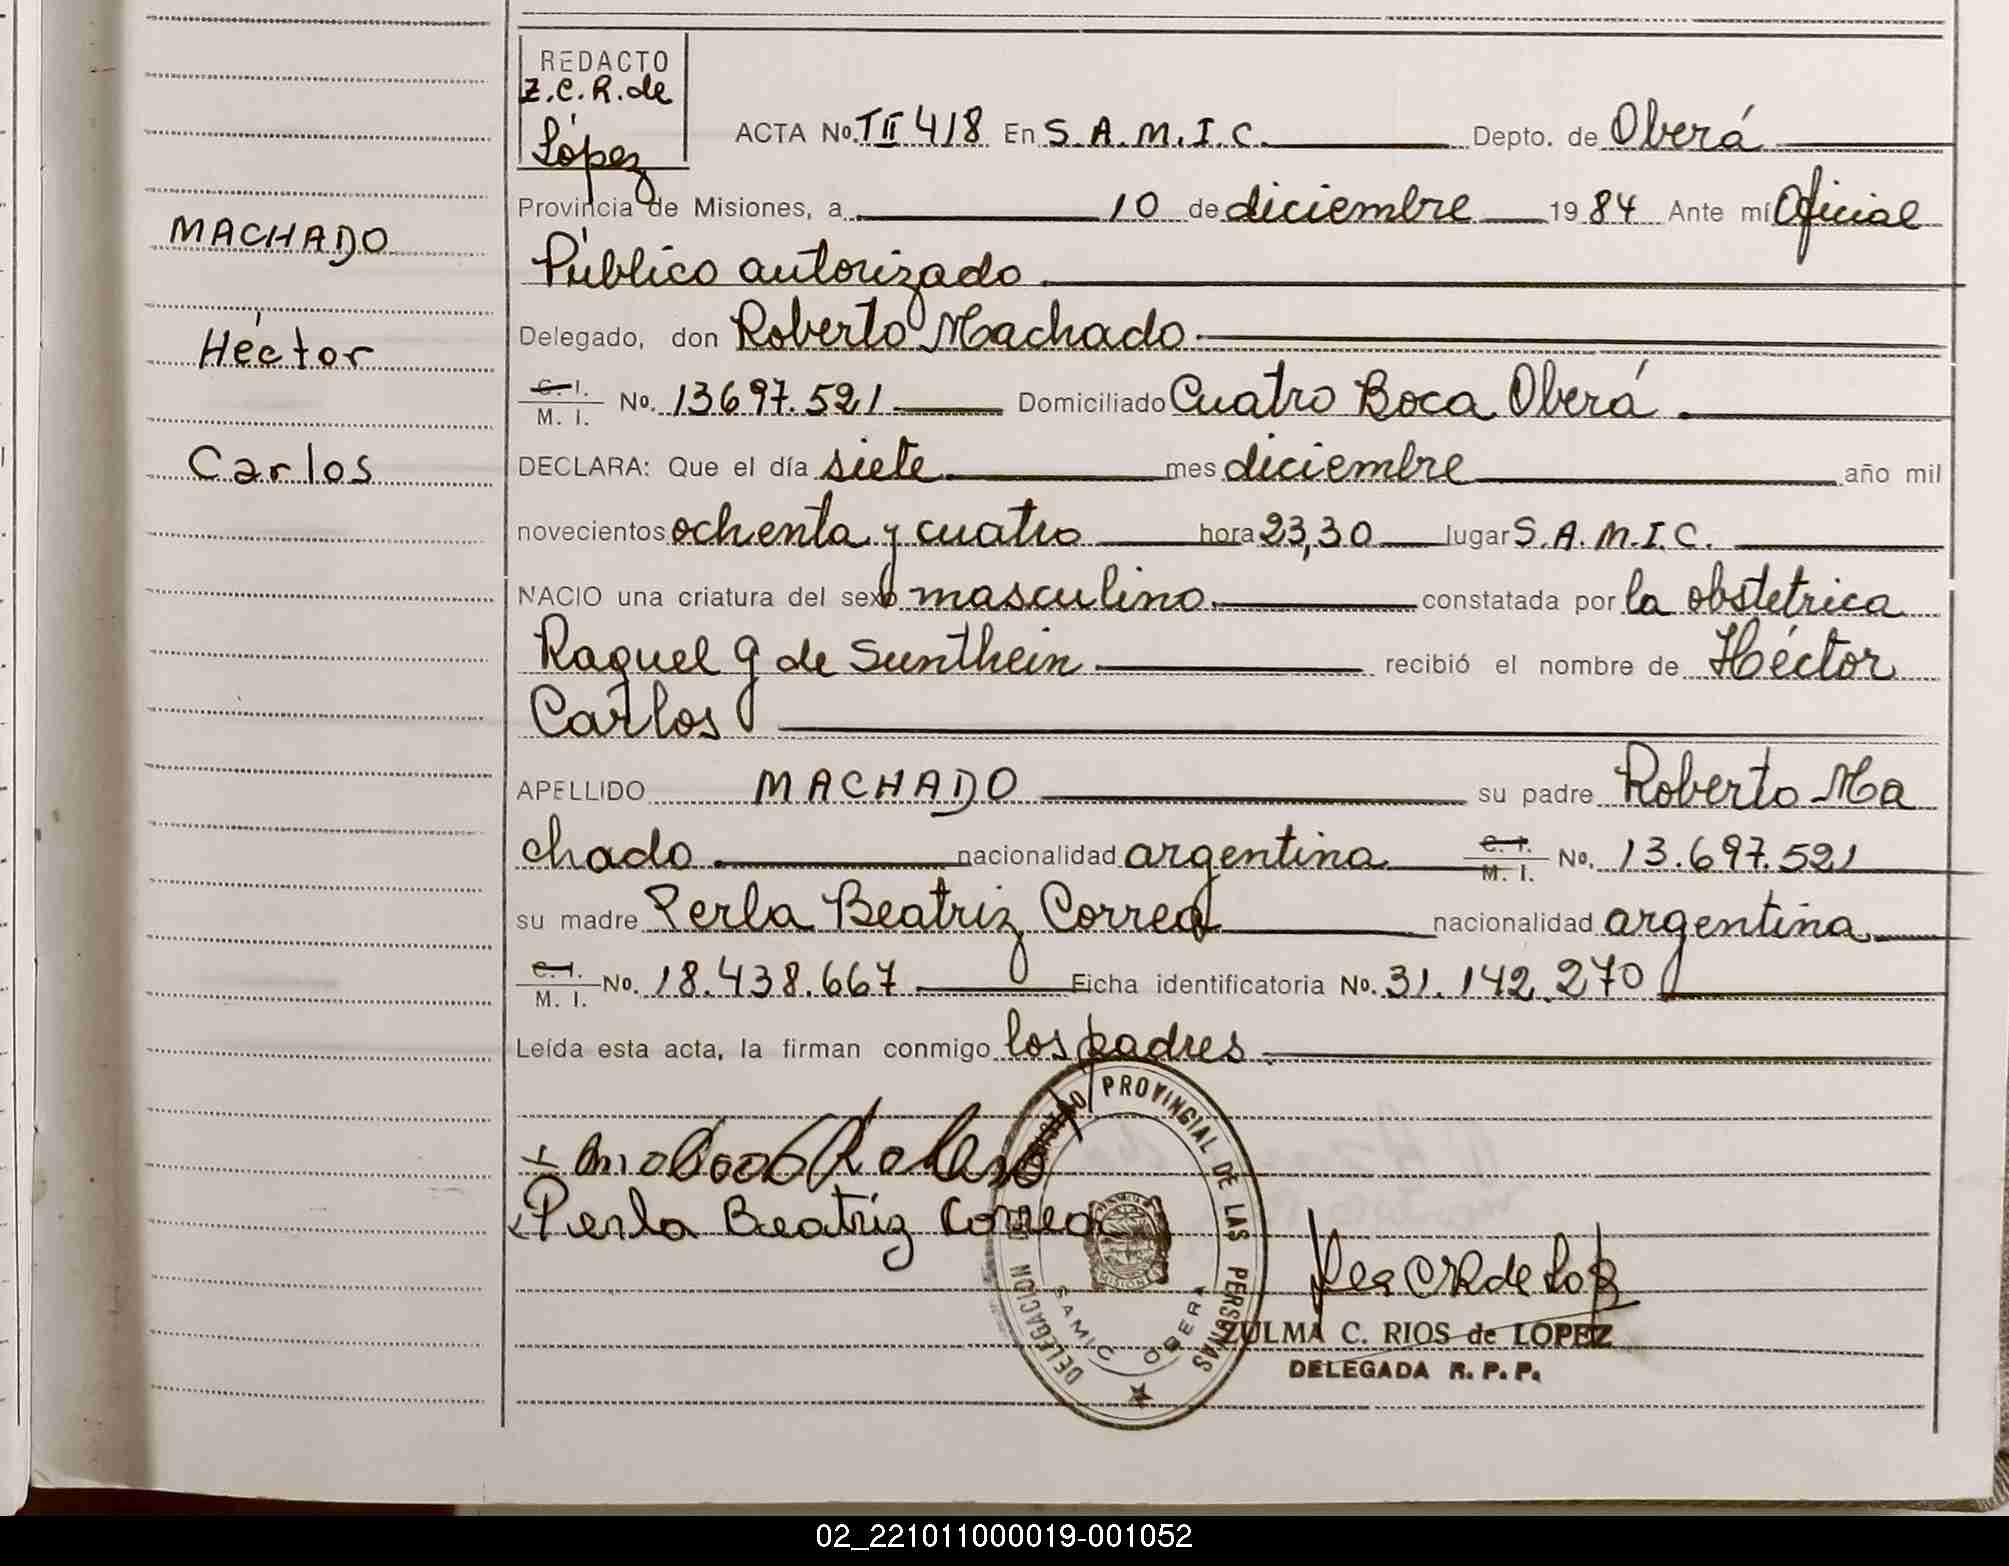 REDACTO
Z.C.R. de
López
ACTA No. TII 418 En S.A.M.I.C. Depto. de Oberá
Provincia de Misiones, a 10 de diciembre 1984 Ante mí Oficial
Público autorizado
Delegado, don Roberto Machado
C. I. / M. I. No. 13697.521 Domiciliado Cuatro Boca Oberá
DECLARA: Que el día siete mes diciembre año mil
novecientos ochenta y cuatro hora 23,30 lugar S.A.M.I.C.
NACIO una criatura del sexo masculino constatada por la obstetrica
Raquel G de Sunthein recibió el nombre de Héctor
Carlos
APELLIDO MACHADO su padre Roberto Ma
chado nacionalidad argentina C. I. / M. I. No. 13.697.521
su madre Perla Beatriz Correa nacionalidad argentina
C. I. / M. I. No. 18.438.667 Ficha identificatoria No. 31.142.270
Leída esta acta, la firman conmigo los padres
MACHADO
Héctor
Carlos
Perla Beatriz Correa
PROVINCIAL DE LAS PERSONAS
DELEGACION
SAMIC OBERA
MISIONES
ZULMA C. RIOS de LOPEZ
DELEGADA R. P. P.
02_221011000019-001052